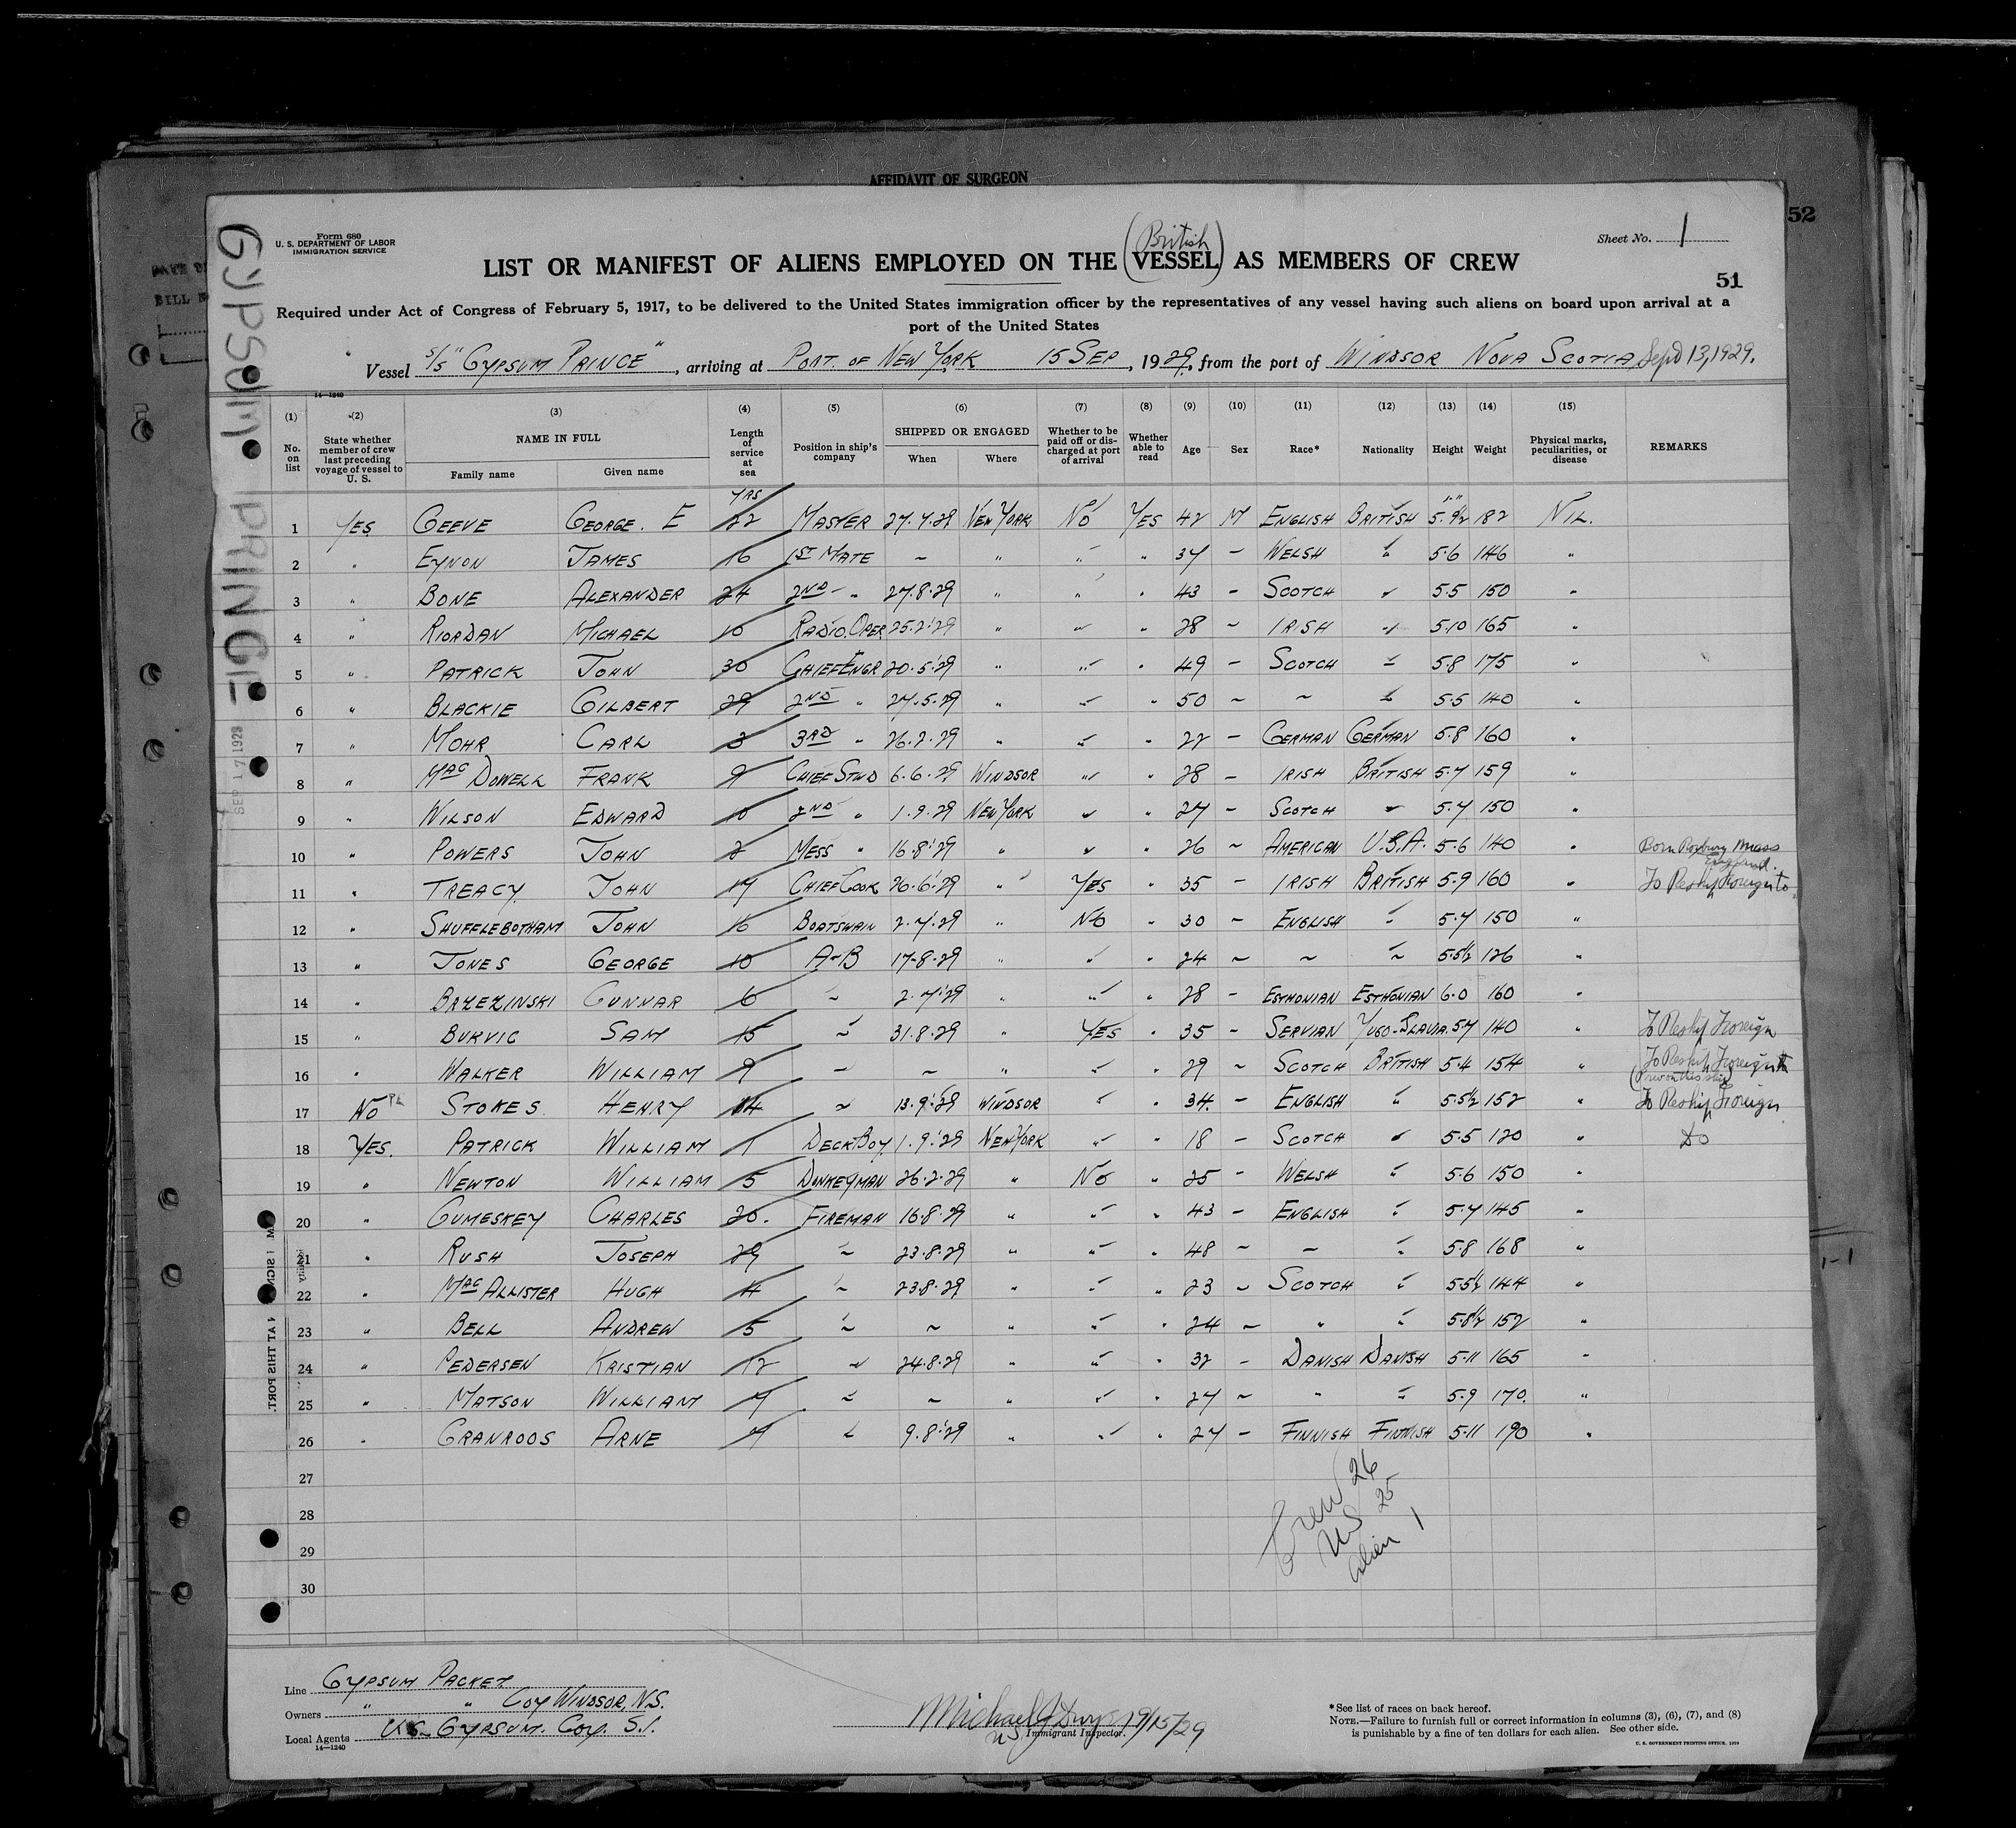 AFFIDAVIT OF SURGEON
52
Form 680
U. S. DEPARTMENT OF LABOR
IMMIGRATION SERVICE
Sheet No. 1
(British)
LIST OR MANIFEST OF ALIENS EMPLOYED ON THE VESSEL AS MEMBERS OF CREW
51
Required under Act of Congress of February 5, 1917, to be delivered to the United States immigration officer by the representatives of any vessel having such aliens on board upon arrival at a
port of the United States
Vessel S/S "GYPSUM PRINCE", arriving at PORT. OF NEW YORK 15 SEP, 1929, from the port of WINDSOR NOVA SCOTIA, Sept 13, 1929.
GYPSUM PRINCE
SEP 17 1929
14—1240
(1) (2) (3) (4) (5) (6) (7) (8) (9) (10) (11) (12) (13) (14) (15)
No. on list
State whether member of crew last preceding voyage of vessel to U. S.
NAME IN FULL
Family name
Given name
Length of service at sea
Position in ship's company
SHIPPED OR ENGAGED
When
Where
Whether to be paid off or discharged at port of arrival
Whether able to read
Age
Sex
Race*
Nationality
Height
Weight
Physical marks, peculiarities, or disease
REMARKS
YRS
1 YES GEEVE GEORGE. E 22 MASTER 27.7.29 NEW YORK NO YES 42 M ENGLISH BRITISH 5.9½ 182 NIL.
2 " EYNON JAMES 16 1ST MATE ~ " " " 37 ~ WELSH " 5.6 146 "
3 " BONE ALEXANDER 24 2ND ~ " 27.8.29 " " " 43 ~ SCOTCH " 5.5 150 "
4 " RIORDAN MICHAEL 10 RADIO.OPER 25.2.29 " " " 28 ~ IRISH " 5.10 165 "
5 " PATRICK JOHN 30 CHIEF ENGR 20.5.29 " " " 49 ~ SCOTCH " 5.8 175 "
6 " BLACKIE GILBERT 29 2ND " 27.5.29 " " " 50 ~ ~ " 5.5 140 "
7 " MOHR CARL 3 3RD " 26.2.29 " " " 22 ~ GERMAN GERMAN 5.8 160 "
8 " MAC DOWELL FRANK 9 CHIEF STWD 6.6.29 WINDSOR " " 28 ~ IRISH BRITISH 5.7 159 "
9 " WILSON EDWARD 10 2ND " 1.9.29 NEW YORK " " 27 ~ SCOTCH " 5.7 150 "
10 " POWERS JOHN 2 MESS " 16.8.29 " " " 26 ~ AMERICAN U.S.A. 5.6 140 " Born Roxbury Mass
England.
11 " TREACY. JOHN 17 CHIEF COOK 26.6.29 " YES " 35 ~ IRISH BRITISH 5.9 160 " To Reship Foreign to
12 " SHUFFLEBOTHAM JOHN 16 BOATSWAIN 2.7.29 " NO " 30 ~ ENGLISH " 5.7 150 "
13 " JONES GEORGE 10 A-B 17.8.29 " " " 24 ~ ~ ~ 5.5½ 126 "
14 " BRZEZINSKI GUNNAR 6 ~ 2.7.29 " " " 28 ~ ESTHONIAN ESTHONIAN 6.0 160 "
15 " BUKVIC SAM 15 ~ 31.8.29 YES " 35 ~ SERVIAN YUGO-SLAVIA. 5.7 140 " To Reship Foreign
16 " WALKER WILLIAM 9 ~ ~ " " " 29 ~ SCOTCH BRITISH 5.4 154 " To Reship Foreign
17 NO STOKES HENRY 14 ~ 13.9.29 WINDSOR " " 34. ~ ENGLISH " 5.5½ 152 " To Reship Foreign
18 YES. PATRICK WILLIAM 1 DECK BOY. 1.9.29 NEW YORK " " 18 ~ SCOTCH " 5.5 120 " Do
19 " NEWTON WILLIAM 5 DONKEYMAN 26.2.29 " NO " 25 ~ WELSH " 5.6 150 "
20 " GUMESKEY CHARLES 20. FIREMAN 16.8.29 " " " 43 ~ ENGLISH " 5.7 145 "
21 " RUSH JOSEPH 29 ~ 23.8.29 " " " 48 ~ ~ " 5.8 168 "
22 " MAC ALLISTER HUGH 4 ~ 23.8.29 " " " 23 ~ SCOTCH " 5.5½ 144 "
23 " BELL ANDREW 5 ~ ~ " " " 24 ~ " " 5.8½ 152 "
24 " PEDERSEN KRISTIAN 12 " 24.8.29 " " " 32 ~ DANISH DANISH 5.11 165 "
25 " MATSON WILLIAM 7 ~ ~ " " " 27 ~ " " 5.9 170. "
26 " GRANROOS ARNE 7 " 9.8.29 " " " 27 ~ FINNISH FINNISH 5.11 190 "
27
28
29
30
Crew 26
US 25
Alien 1
AT THIS PORT.
Line GYPSUM PACKET
Owners " " COY WINDSOR, N.S.
Local Agents U.S. GYPSUM. COY. S.I.
14—1240
Michael J Dwyer 9/15/29
US Immigrant Inspector.
*See list of races on back hereof.
NOTE.—Failure to furnish full or correct information in columns (3), (6), (7), and (8)
is punishable by a fine of ten dollars for each alien. See other side.
U. S. GOVERNMENT PRINTING OFFICE, 1929